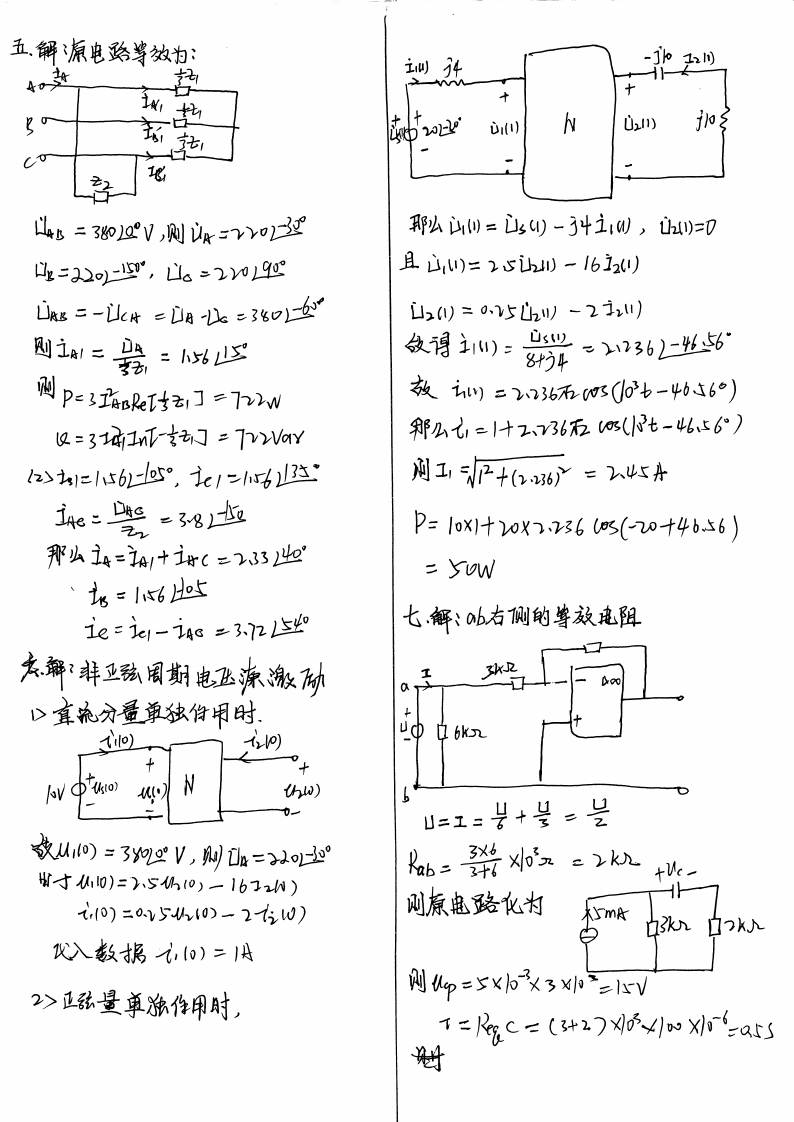 五.解:原电路等效为:
İA ⅓Z1
A İA1 ⅓Z1
B İB1 ⅓Z1
C İC1
Z2
U̇AB = 380∠0° V,则U̇A = 220∠-30°
U̇B = 220∠-150°, U̇C = 220∠90°
U̇AB = -U̇CA = U̇A - U̇C = 380∠-60°
则İA1 = U̇A / ⅓Z1 = 1.56∠15°
则 P = 3I²AB Re[⅓Z1] = 722W
Q = 3I²A1 Im[-⅓Z1] = 722Var
(2) İB1 = 1.56∠-105°, İC1 = 1.56∠135°
İAC = U̇AC / Z2 = 3.8∠-150
那么 İA = İA1 + İAC = 2.33∠40°
İB = 1.56∠-105
İC = İC1 - İAC = 3.72∠540
六.解:非正弦周期电压源激励
1> 直流分量单独作用时.
i1(0) i2(0)
10V + us(0) - + u1(0) - N + u2(0) -
故U1(0) = 380∠0° V,则U̇A = 220∠-30°
由于 u1(0) = 2.5u2(0) - 16I2(0)
i1(0) = 0.25u2(0) - 2i2(0)
代入数据 i1(0) = 1A
2> 正弦量单独作用时,
İ1(1) j4 -j10 İ2(1)
U̇s(1) + 20∠-20° - + U̇1(1) - N + U̇2(1) - j10
那么 U̇1(1) = U̇s(1) - j4İ1(1), U̇2(1)=0
且 U̇1(1) = 2.5U̇2(1) - 16İ2(1)
U̇2(1) = 0.25U̇2(1) - 2İ2(1)
故得 İ1(1) = U̇s(1) / 8+j4 = 2.236∠-46.56°
故 i1(1) = 2.236√2 cos(10³t - 46.56°)
那么 i1 = 1 + 2.236√2 cos(10³t - 46.56°)
则 I1 = √1² + (2.236)² = 2.45A
P = 10×1 + 20×2.236 cos(-20+46.56)
= 50W
七.解:ab右侧的等效电阻
a I 3kΩ - Δ∞
+ U - 6kΩ +
b
U = I = U/6 + U/3 = U/2
Rab = 3×6 / 3+6 ×10³Ω = 2kΩ
+ uc -
则原电路化为 5mA 3kΩ 2kΩ
则 Uop = 5×10⁻³×3×10³ = 15V
τ = Reqc = (3+2)×10³×100×10⁻⁶ = 0.5S